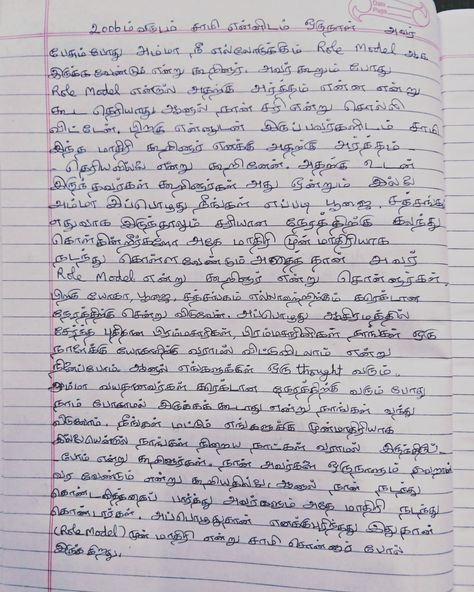 2006ம் வருடம் சாமி என்னிடம் ஒருநாள் அவர்
பேசும்போது அம்மா நீ எல்லோருக்கும் Role Model ஆக
இருக்கவேண்டும் என்று கூறினார். அவர் கூறும் போது
Role Model என்றால் அதற்கு அர்த்தம் என்ன என்று
கூட தெரியாது ஆனால் நான் சரி என்று சொல்லி
விட்டேன். பிறகு என்னுடன் இருப்பவர்களிடம் சாமி
இந்த மாதிரி கூறினார் எனக்கு அதற்கு அர்த்தம்
தெரியவில்லை என்று கூறினேன். அதற்கு உடன்
இருந்தவர்கள் கூறினார்கள் அது ஒன்றும் இல்லை
அம்மா இப்பொழுது நீங்கள் எப்படி பூஜை, சத்சங்கம்
எதுவாக இருந்தாலும் சரியான நேரத்திற்கு கலந்து
கொள்கின்றீர்களோ அதே மாதிரி முன்மாதிரியாக
நடந்து கொள்ள வேண்டும் அதைத் தான் அவர்
Role Model என்று கூறினார் என்று சொன்னார்கள்.
பிறகு யோகா, பூஜை, சத்சங்கம் எல்லாவற்றிற்கும் கரெக்டான
நேரத்திற்கு சென்று விடுவேன். அப்பொழுது ஆசிரமத்தில்
சேர்ந்த புதிதான பிரம்மசாரிகள், பிரம்மசாரிணிகள், நாங்கள் ஒரு
நாளைக்கு யோகாவிற்கு வராமல் விட்டுவிடலாம் என்று
நினைப்போம் ஆனால் எங்களுக்கு ஒரு thought வரும்.
அம்மா வயதானவர்கள் கரெக்டான நேரத்திற்கு வரும் போது
நாம் போகாமல் இருக்கக் கூடாது என்று நாங்கள் வந்து
விடுவோம். நீங்கள் மட்டும் எங்களுக்கு முன்மாதிரியாக
இல்லையென்றால் நாங்கள் நிறைய நாட்கள் வராமல் இருந்திருப்-
போம் என்று கூறினார்கள். நான் அவர்களை ஒருநாளும்
வர வேண்டும் என்று கூறியதில்லை. ஆனால் நான் நடந்து
கொண்டவிதத்தைப் பார்த்து அவர்களும் அதே மாதிரி நடந்து
கொண்டார்கள். அப்பொழுதுதான் எனக்குபுரிந்தது இதுதான்
(Role Model) முன் மாதிரி என்று சாமி சொன்னார் போல்
இருக்கிறது.